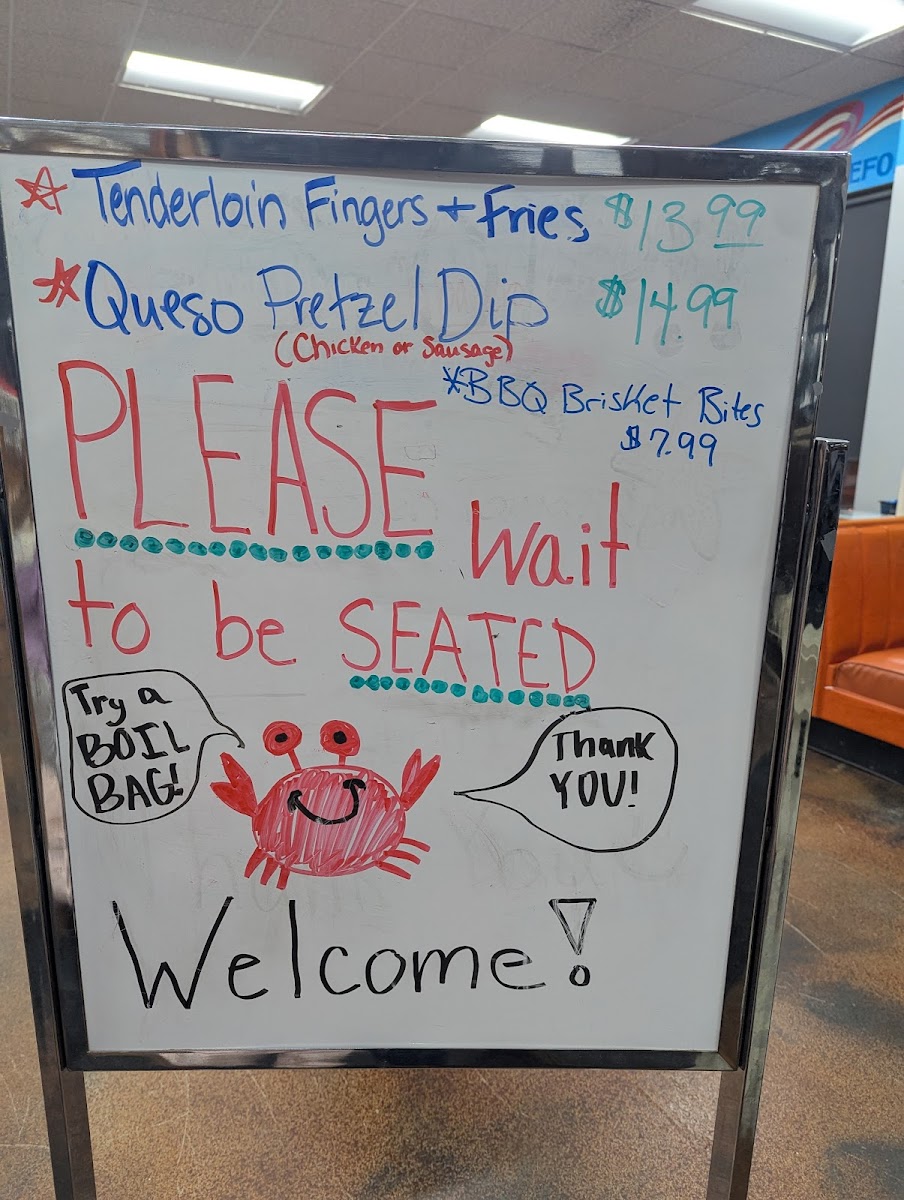 Tenderloin Fingers + Fries $13.99
Queso Pretzel Dip $14.99
(Chicken or Sausage)
*BBQ Brisket Bites
$7.99
PLEASE wait
to be SEATED
Try a
BOIL
BAG!
Thank
YOU!
Welcome!
EFO